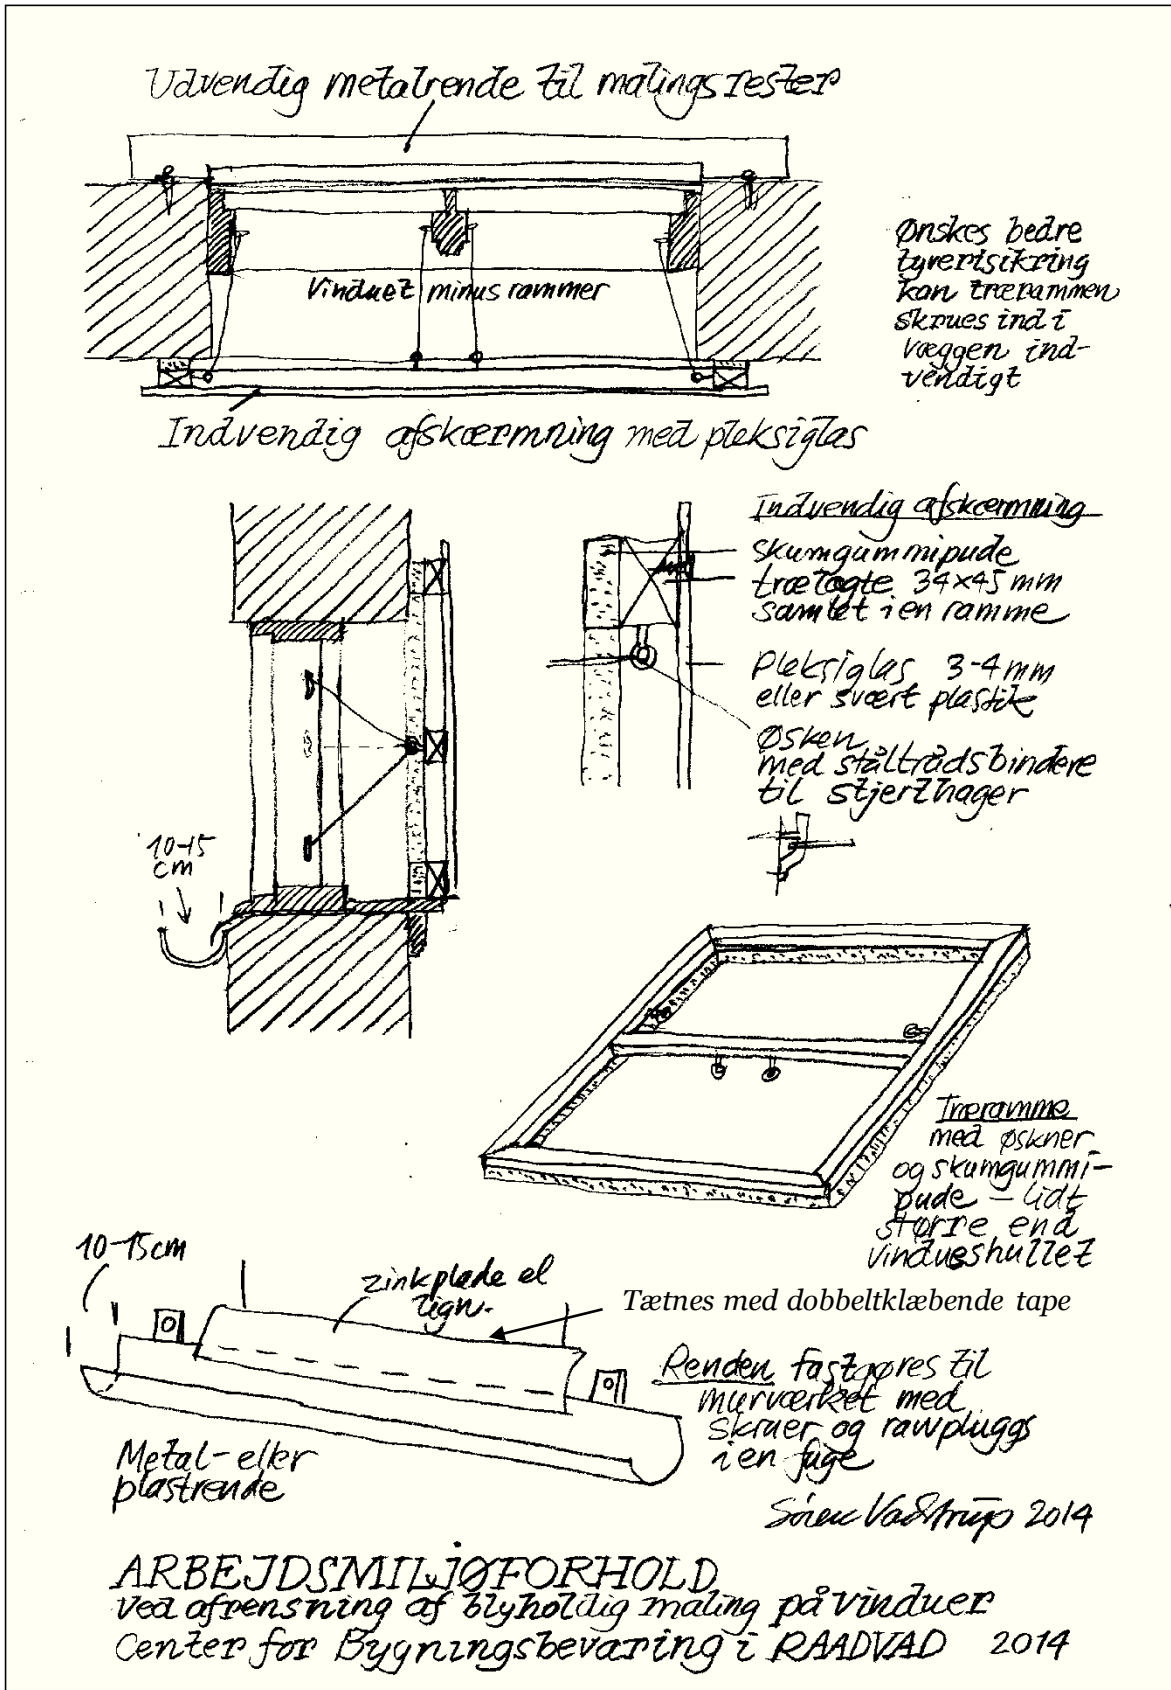 Udvendig metalrende til malingsrester
Ønskes bedre
tyverisikring
kan trærammen
skrues ind i
væggen ind-
vendigt
Vinduet minus rammer
Indvendig afskærmning med pleksiglas
Indvendig afskærmning
skumgummipude
trælægte 34x45 mm
samlet i en ramme
Pleksiglas 3-4 mm
eller svært plastik
Øsken
med ståltrådsbindere
til stjerthager
10-15
cm
Træramme
med øskner
og skumgummi-
pude – lidt
større end
vindueshullet
10-15cm
zinkplade el
lign.
Tætnes med dobbeltklæbende tape
Renden fastgøres til
murværket med
skruer og rawpluggs
i en fuge
Metal- eller
plastrende
Søren Vadstrup 2014
ARBEJDSMILJØFORHOLD
ved afrensning af blyholdig maling på vinduer
Center for Bygningsbevaring i RAADVAD 2014